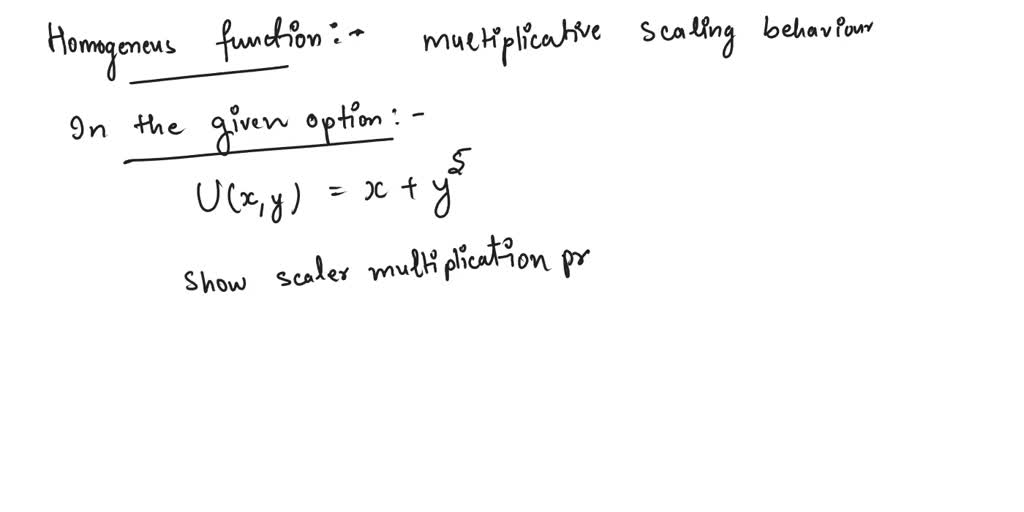 Homogeneus function:- multiplicative scaling behaviour
In the given option:-
U(x,y) = x + y^5
Show scaler multiplication pr